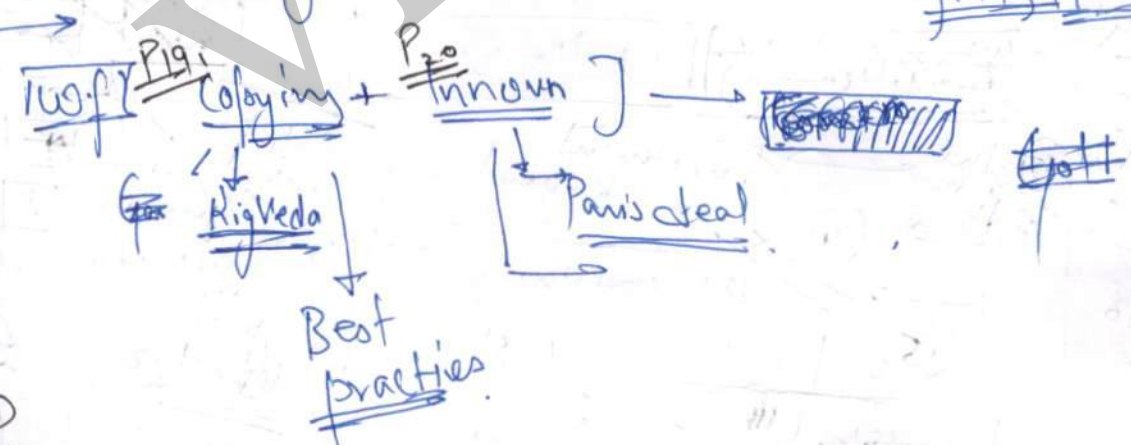 P19, P20
Copying + Innovn ]
RigVeda Paris deal
Best
practies.